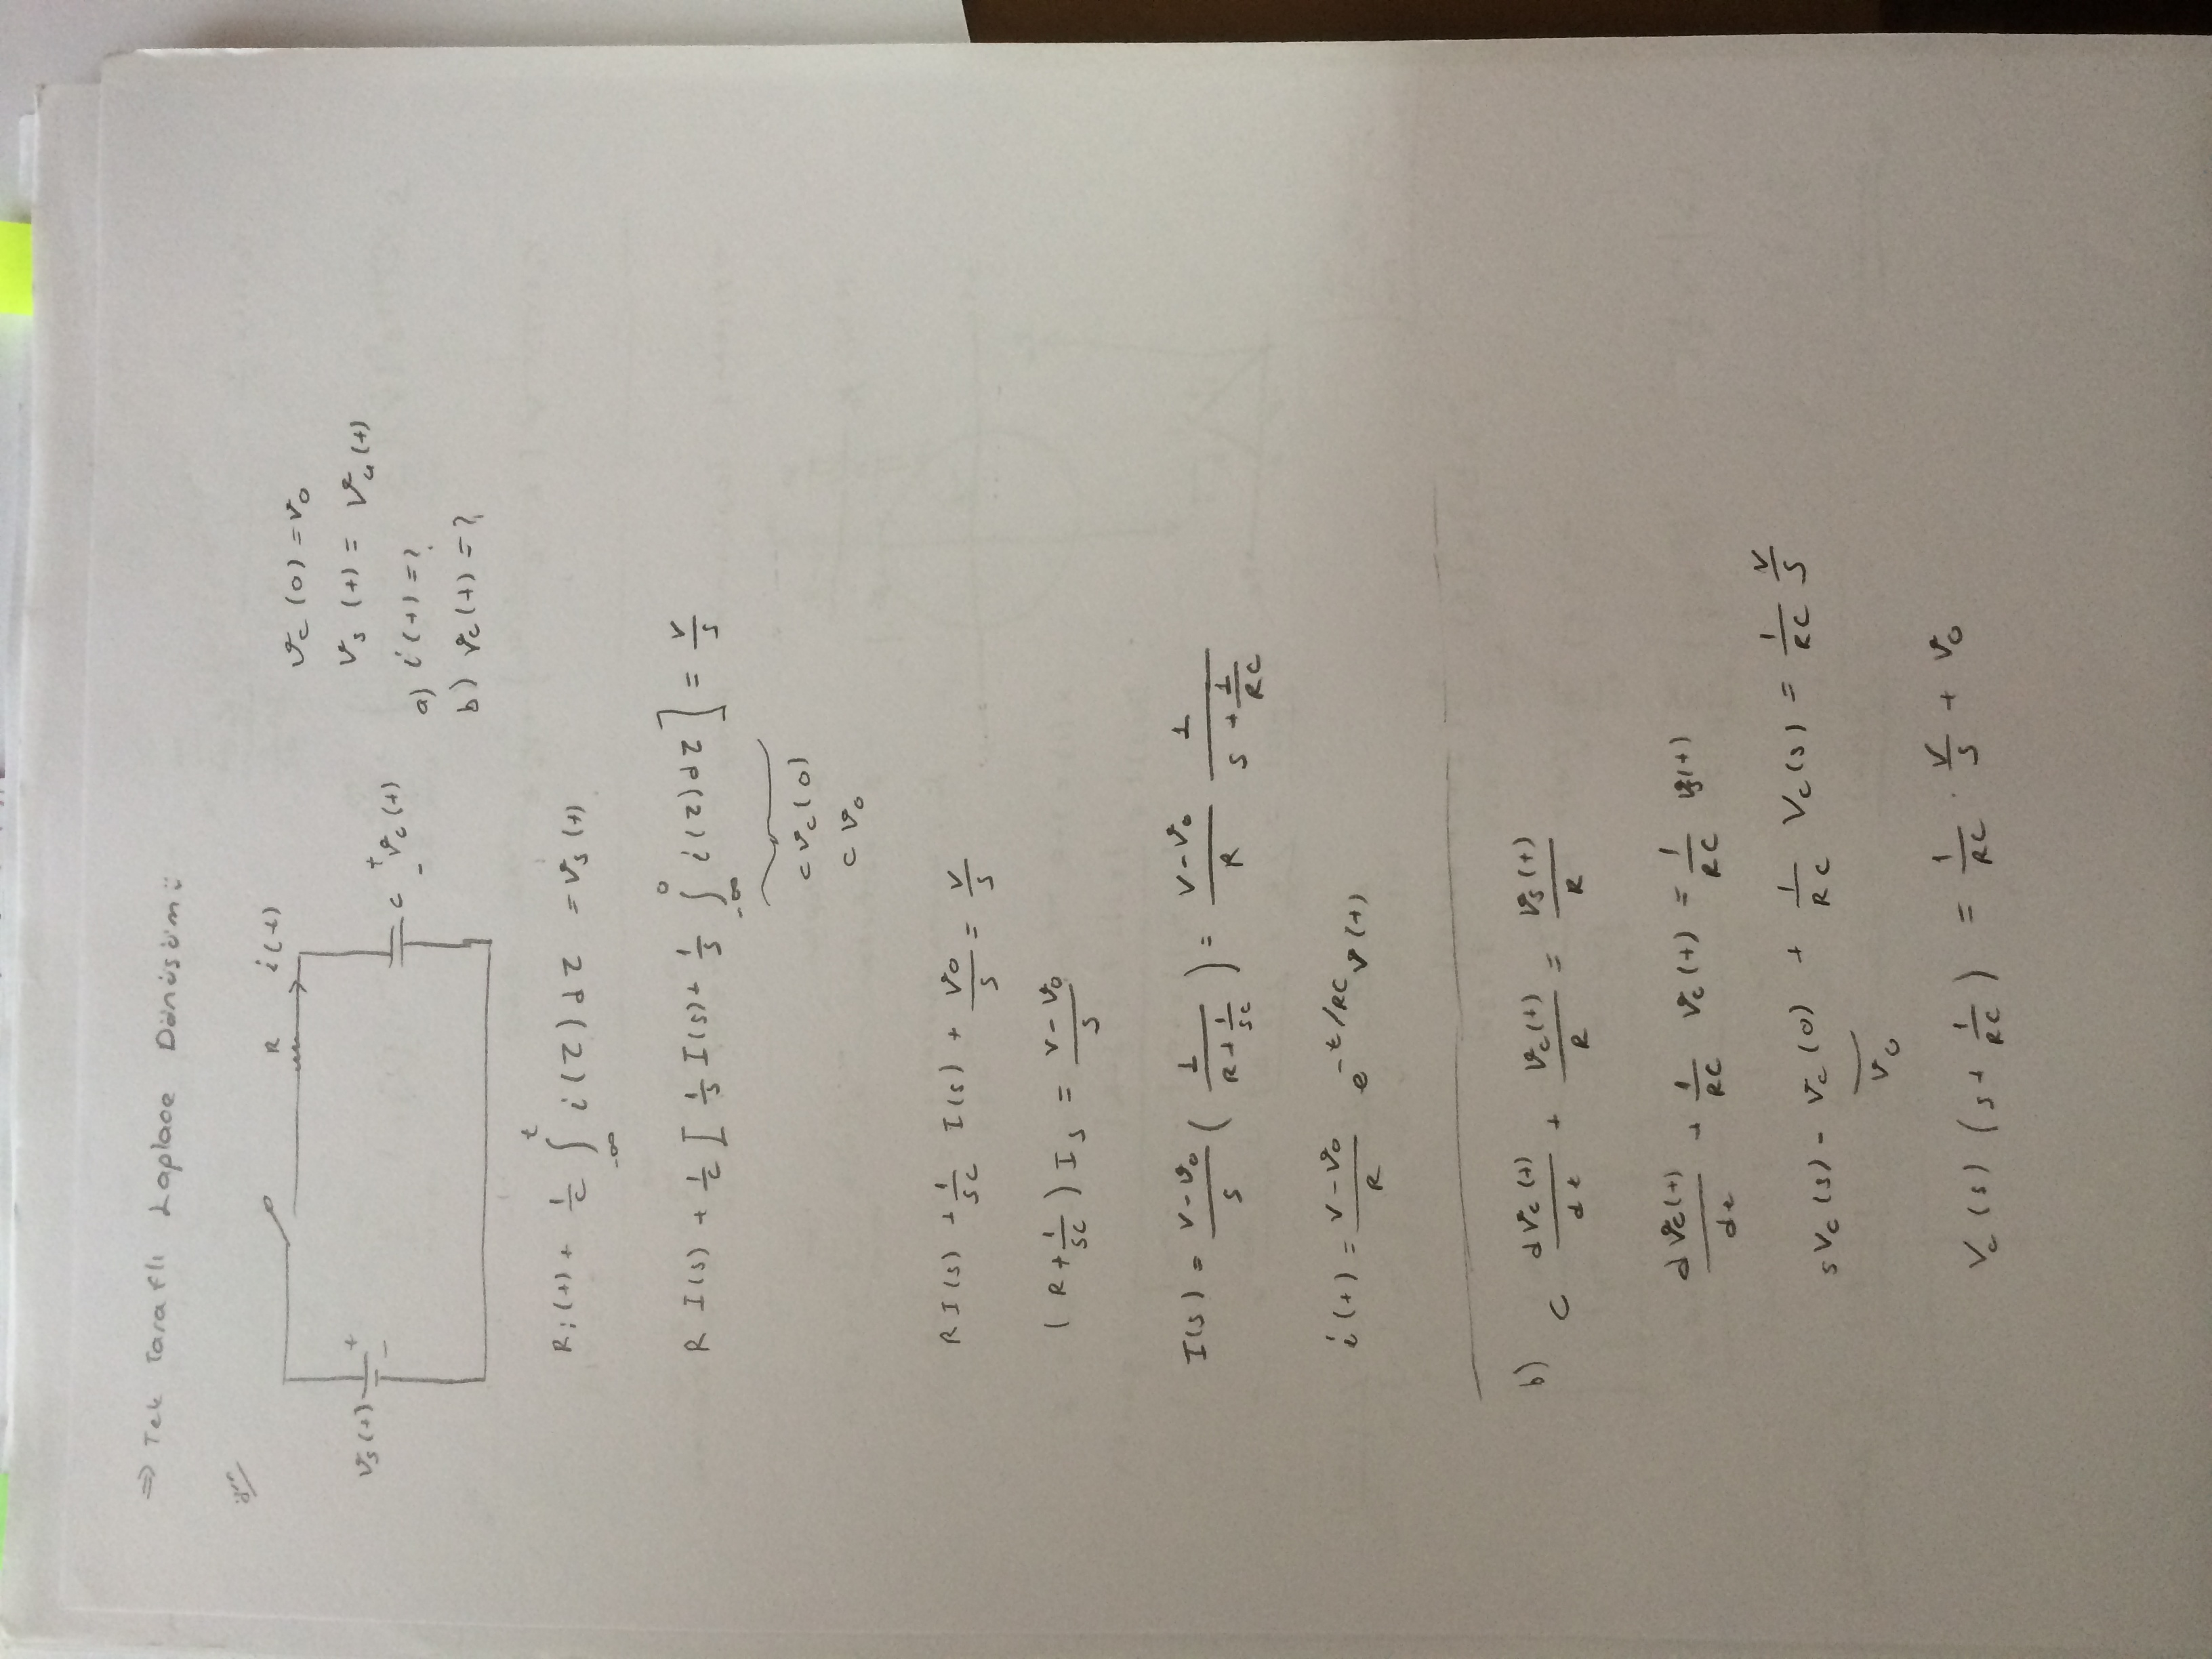 ⇒ Tek Taraflı Laplace Dönüşümü
örn
R i(t)
v_c(0) = v_0
v_s(t) + -
v_s(t) = V u(t)
C + v_c(t) -
a) i(t) = ?
b) v_c(t) = ?
R i(t) + 1/C ∫_{-∞}^{t} i(τ) dτ = v_s(t)
R I(s) + 1/C [ 1/s I(s) + 1/s ∫_{-∞}^{0} i(τ) dτ ] = V/s
C v_c(0)
C v_0
R I(s) + 1/SC I(s) + v_0/s = V/s
( R + 1/SC ) I_s = (V - v_0)/s
I(s) = (V - v_0)/s ( 1/(R + 1/SC) ) = (V - v_0)/R 1/(s + 1/RC)
i(t) = (V - v_0)/R e^{-t/RC} v(t)
b) C d v_c(t)/dt + v_c(t)/R = v_s(t)/R
d v_c(t)/dt + 1/RC v_c(t) = 1/RC v_s(t)
s V_c(s) - v_c(0) + 1/RC V_c(s) = 1/RC V/s
v_0
V_c(s) ( s + 1/RC ) = 1/RC . V/s + v_0